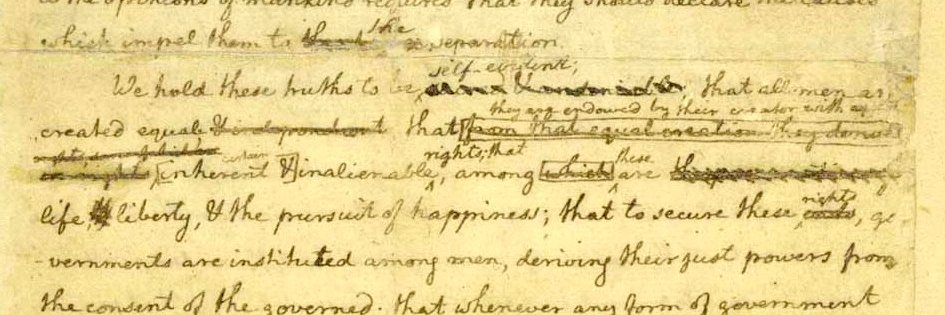 to the opinions of mankind requires that they should declare the causes
the
which impel them to separation.
self-evident;
We hold these truths to be that all men are
they are endowed by their creator with
created equal & independant that from that equal creation they derive
rights; that
certain these
inherent & inalienable, among which are
rights
life, & liberty, & the pursuit of happiness; that to secure these ends, go
-vernments are instituted among men, deriving their just powers from
the consent of the governed. that whenever any form of government